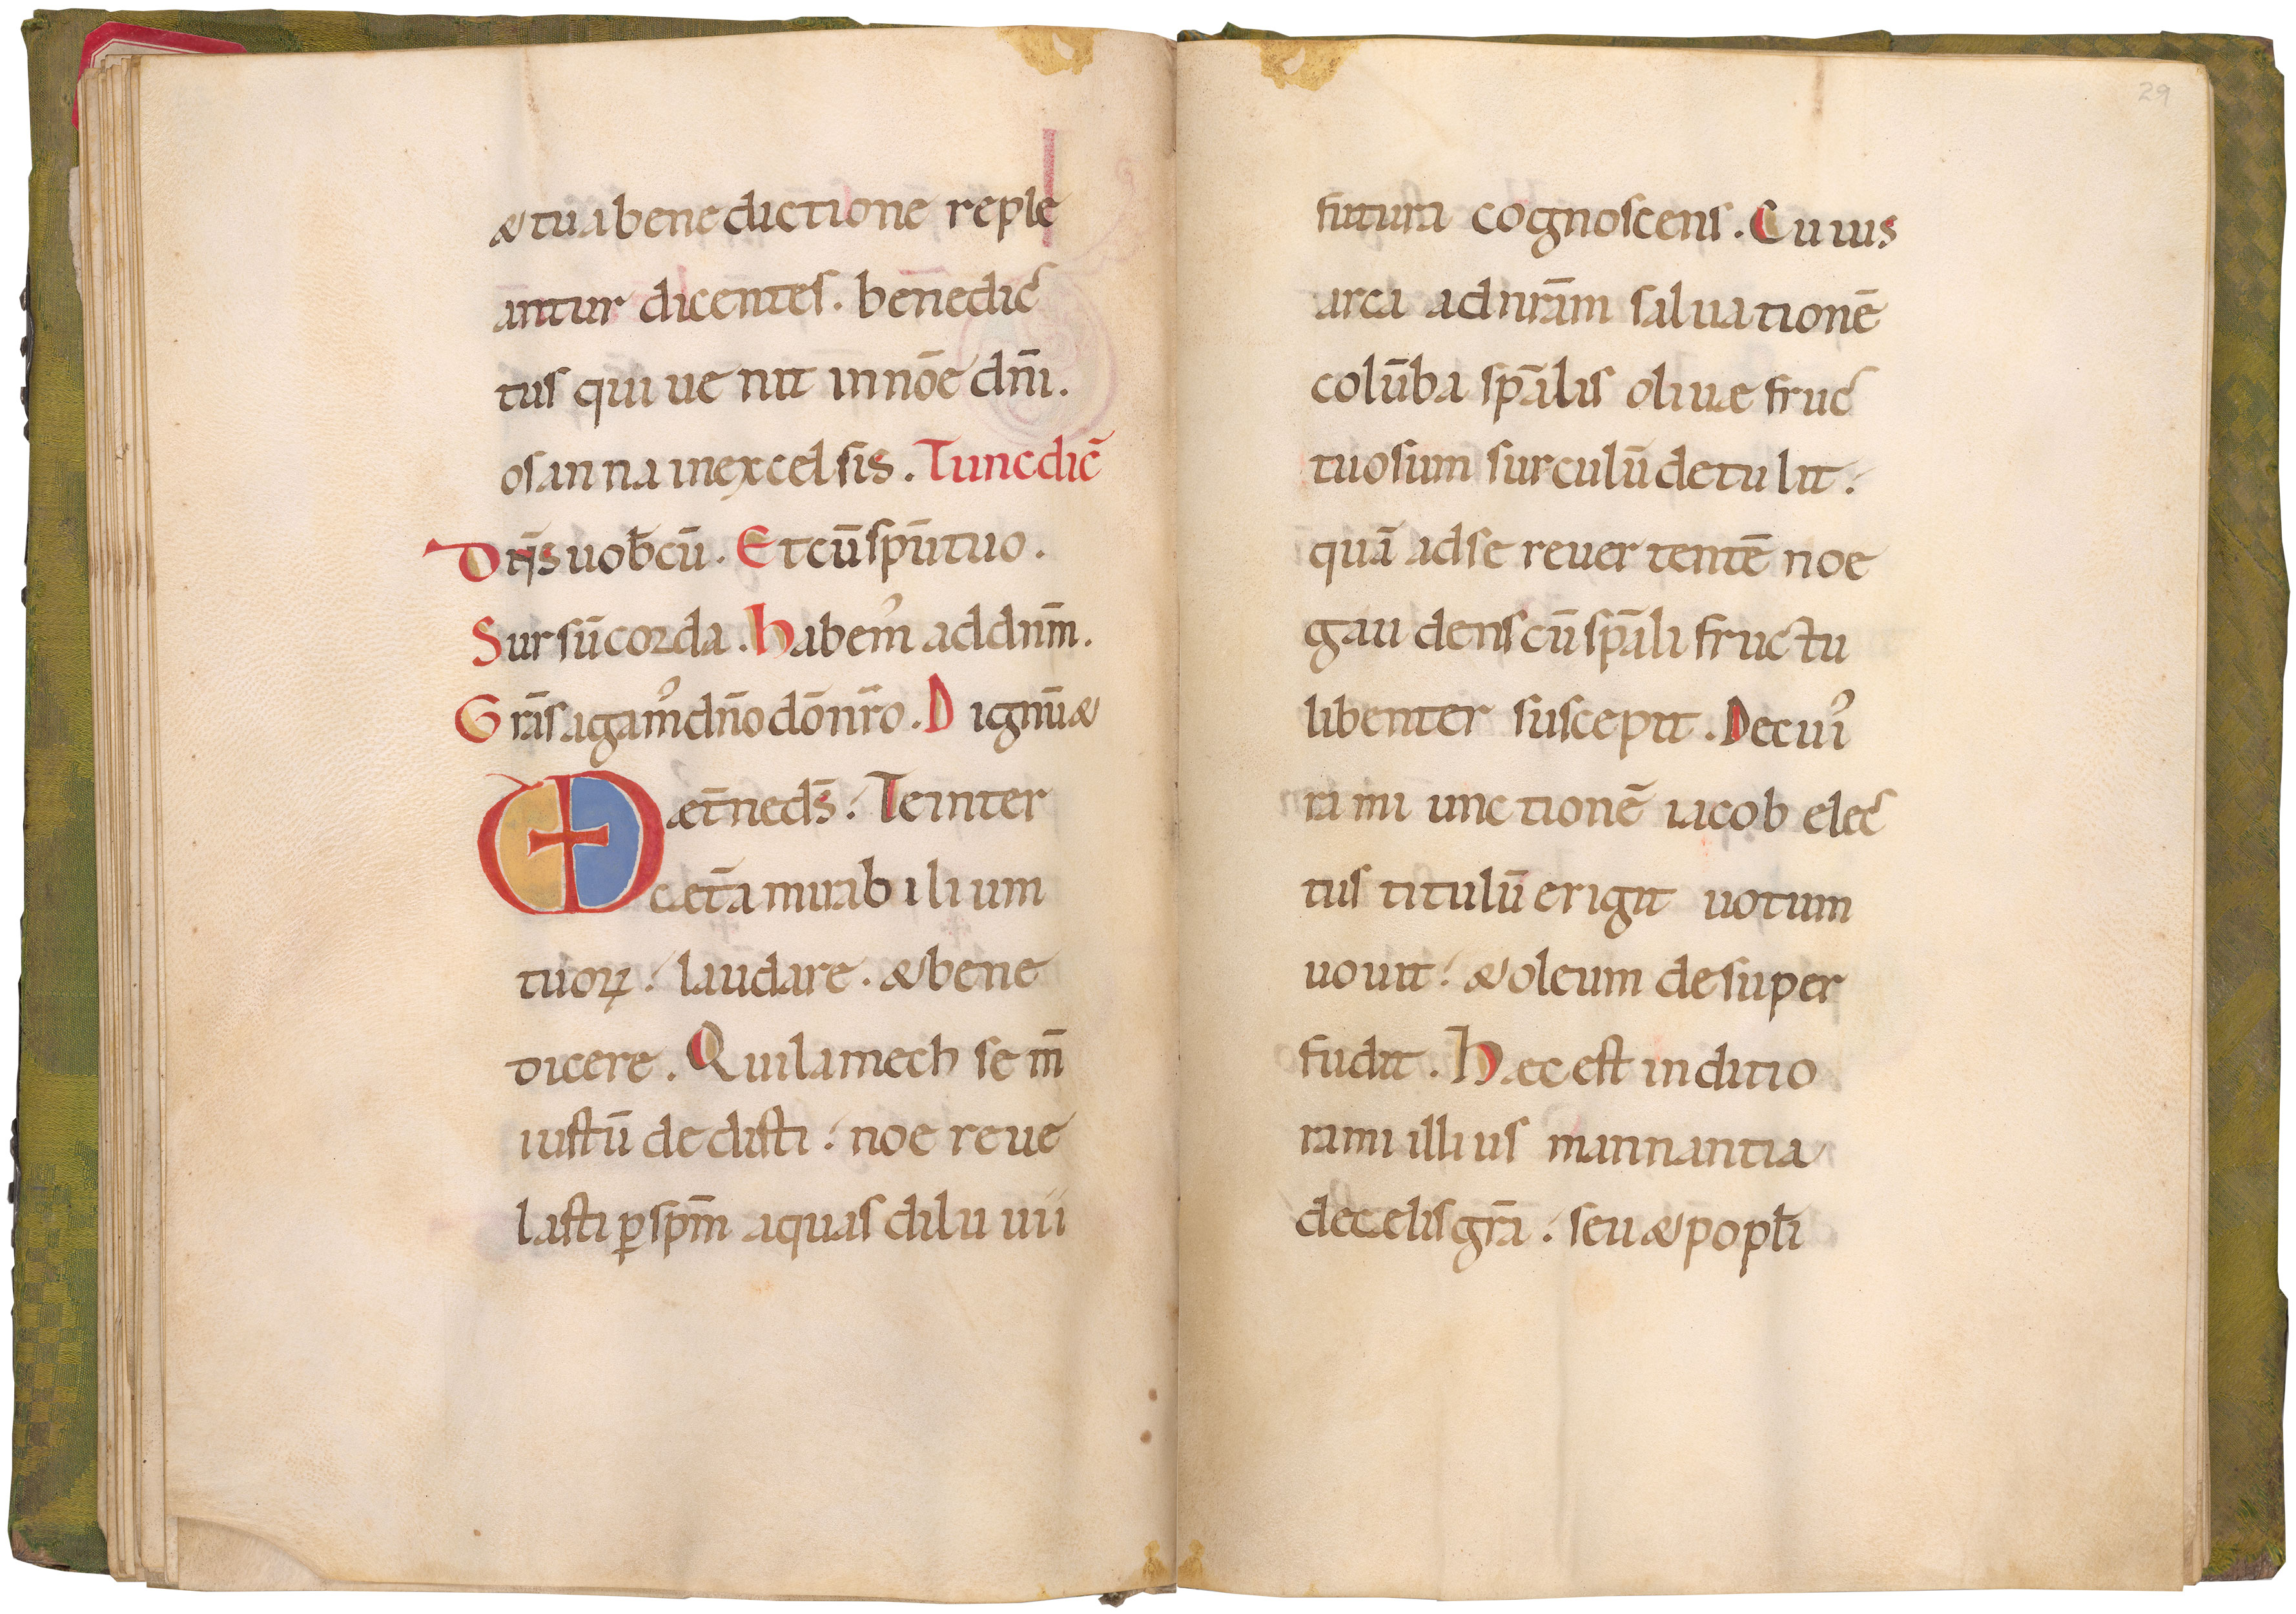 & tua benedictione reple
antur dicentes. benedic̄
tus qui uenit in nōe dn̄i.
osanna in excelsis. Tunc dic̄
Dn̄s uob̄cū. Et cū sp̄u tuo.
Sursū corda. habem᾽ ad dn̄m.
Grās agam᾽ dn̄o dō nr̄o. Dignū &
æt̄ne ds̄. Te inter
cæt̄a mirabilium
tuoꝝ. laudare. & bene
dicere. Qui lamech sem̄
iustū dedisti. noe reue
lasti ꝑ sp̄m aquas diluuii
29
futura cognoscens. Cuius
arca ad nrām saluationē
colūba sp̄alis oliuæ fruc
tuosum surculū detulit.
quā ad se reuertentē noe
gaudens cū sp̄ali fructu
libenter suscepit. De cui᾽
rami unctionē iacob elec
tus titulū erigit uotum
uouit. & oleum desuper
fudit. Hæc est inditio
rami illius mannantia
de celis grā. seu & popl̄i